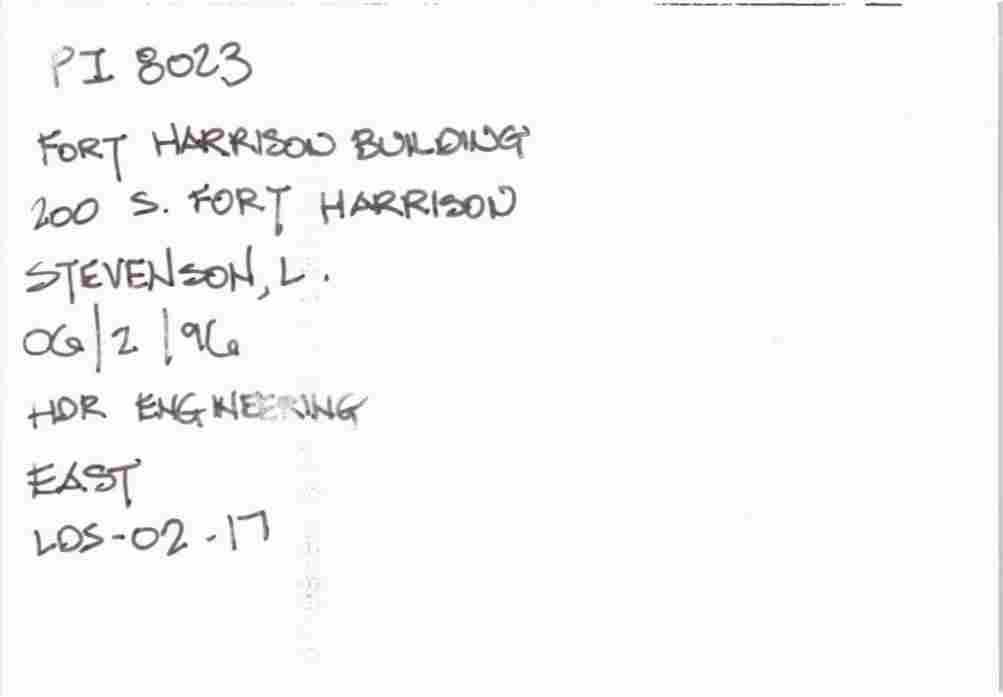 PI 8023
FORT HARRISON BUILDING
200 S. FORT HARRISON
STEVENSON, L.
06/2/96
HDR ENGINEERING
EAST
LDS-02-17